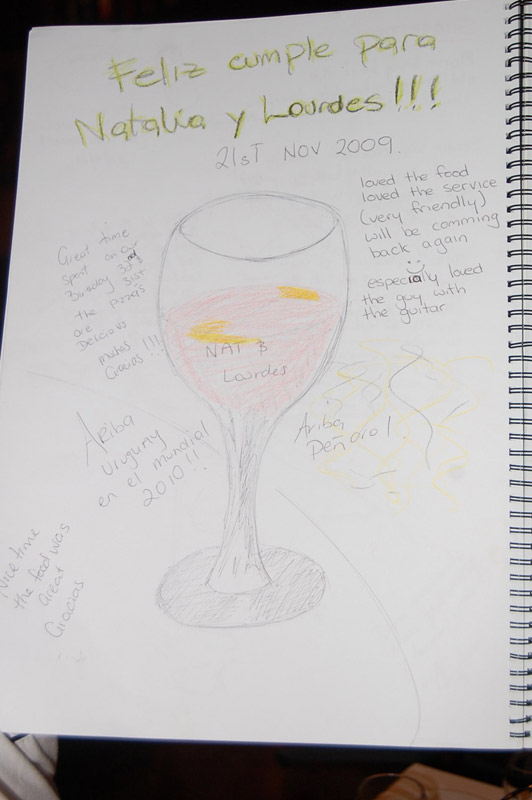 Feliz cumple para
Natalia y Lourdes!!!
21ST NOV 2009.
loved the food
loved the service
(very friendly)
will be comming
back again
especially loved
the guy with
the guitar
Great time
spent on our
Birthday
the pizzas
are
Delicious
muchas
Gracias!!!
NAT &
Lourdes
Ariba
Uruguay
en el mundial
2010!!
Ariba
Peñarol!
Nice time
the food was
Great
Gracias